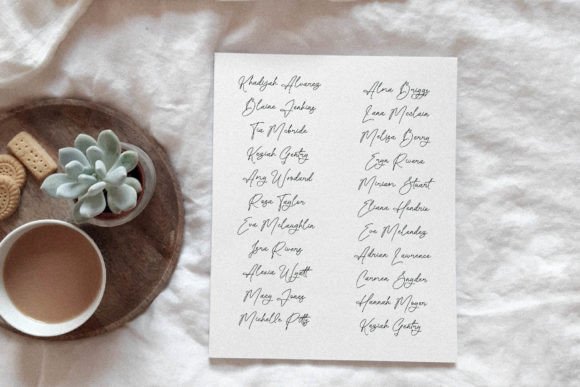 Khadijah Alvarez
Blaine Jenkins
Tia Mcbride
Keziah Gentry
Amy Woodard
Rosa Taylor
Eva Mclaughlin
Isra Rivers
Alexia Wyatt
Macy Jones
Michelle
Alma Briggs
Lana Mcclain
Melisa Berry
Eryn Rivera
Miriam Stuart
Eliana Hendrix
Eve Melendez
Adrian Lawrence
Carmen Snyder
Hannah Moyer
Keziah Gentry